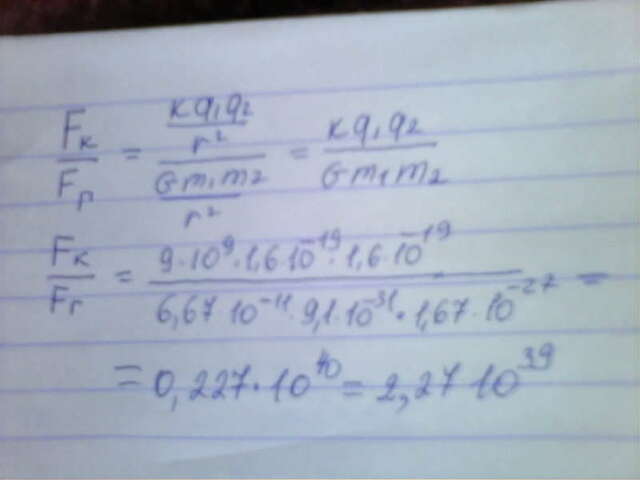 Fк/Fг = (кq₁q₂/r²)/(Gm₁m₂/r²) = кq₁q₂/Gm₁m₂
Fк/Fг = 9·10⁹·1,6·10⁻¹⁹·1,6·10⁻¹⁹/6,67·10⁻¹¹·9,1·10⁻³¹·1,67·10⁻²⁷ =
= 0,227·10⁴⁰ = 2,27·10³⁹